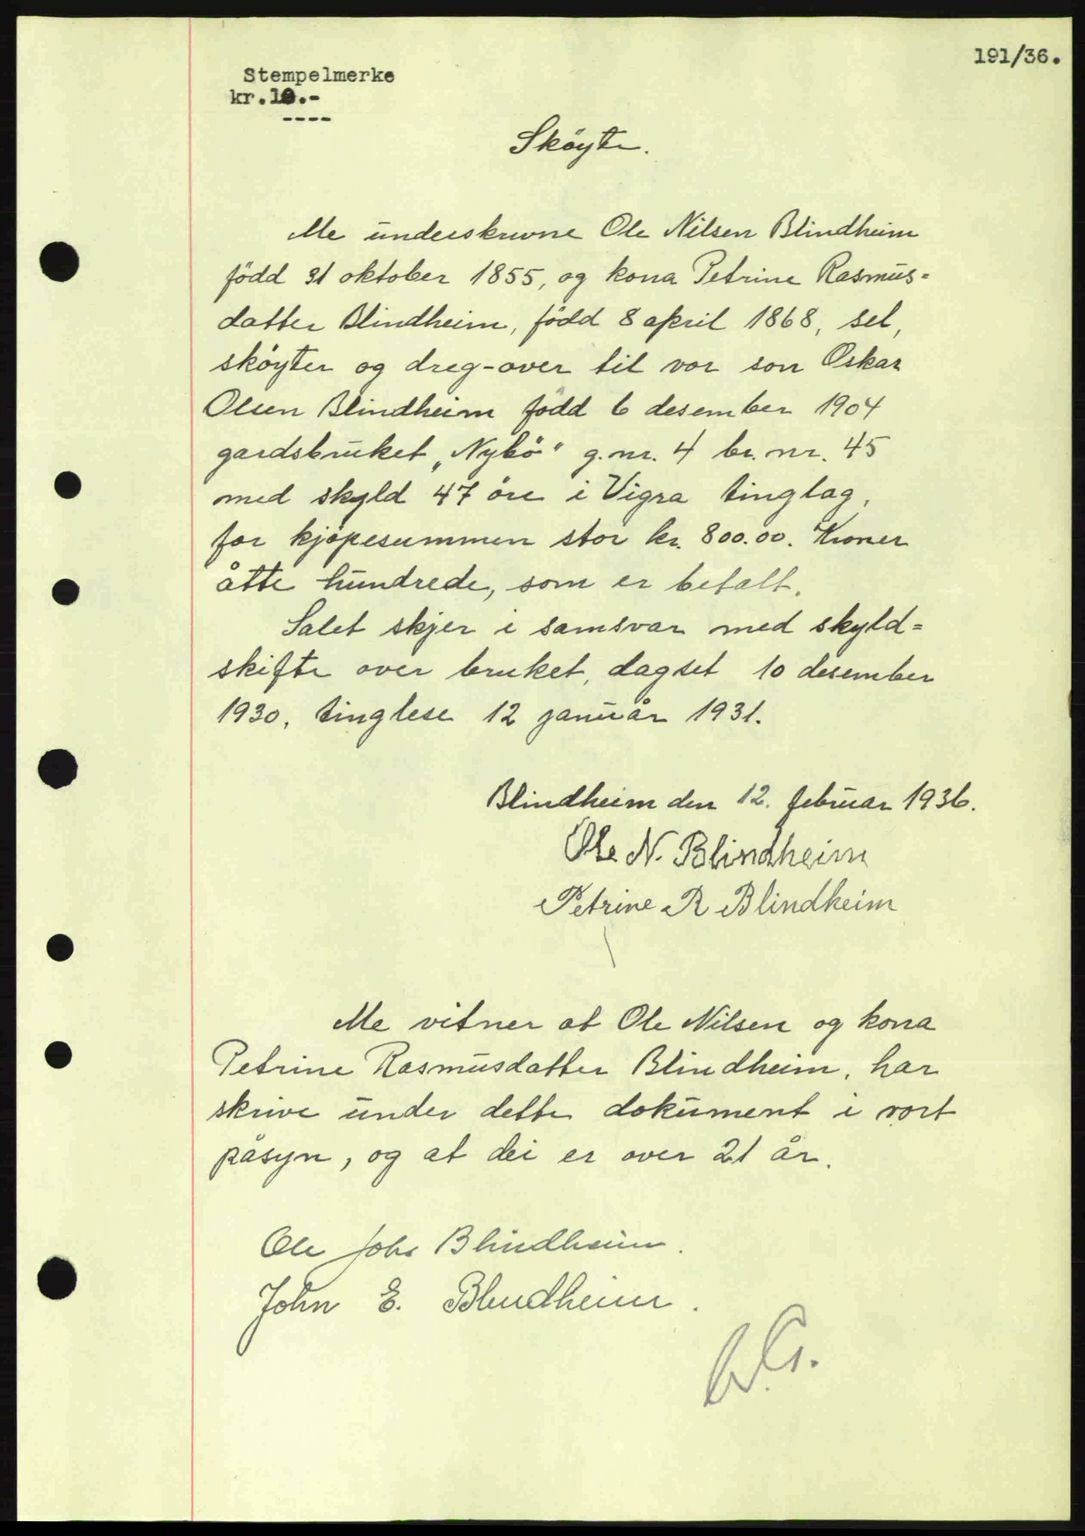 191/36.
Stempelmerke
kr.10.-
----
Skøyte.
Me underskrivne Ole Nilsen Blindheim
född 31 oktober 1855, og kona Petrine Rasmus=
datter Blindheim, född 8 april 1868, sel,
skøyter og dreg-over til vor son Oskar
Olsen Blindheim född 6 desember 1904
gardsbruket „Nybö" g.nr. 4 br. nr. 45
med skyld 47 öre i Vigra tinglag,
for kjöpesummen stor kr. 800.00. Kroner
åtte hundrede, som er betalt.
Salet skjer i samsvar med skyld=
skifte over bruket, dagset 10 desember
1930, tinglese 12 januar 1931.
Blindheim den 12. februar 1936.
Ole N. Blindheim
Petrine R Blindheim
Me vitner at Ole Nilsen og kona
Petrine Rasmusdatter Blindheim, har
skrive under dette dokument i vort
påsyn, og at dei er over 21 år.
Ole Johs Blindheim.
John E. Blindheim.